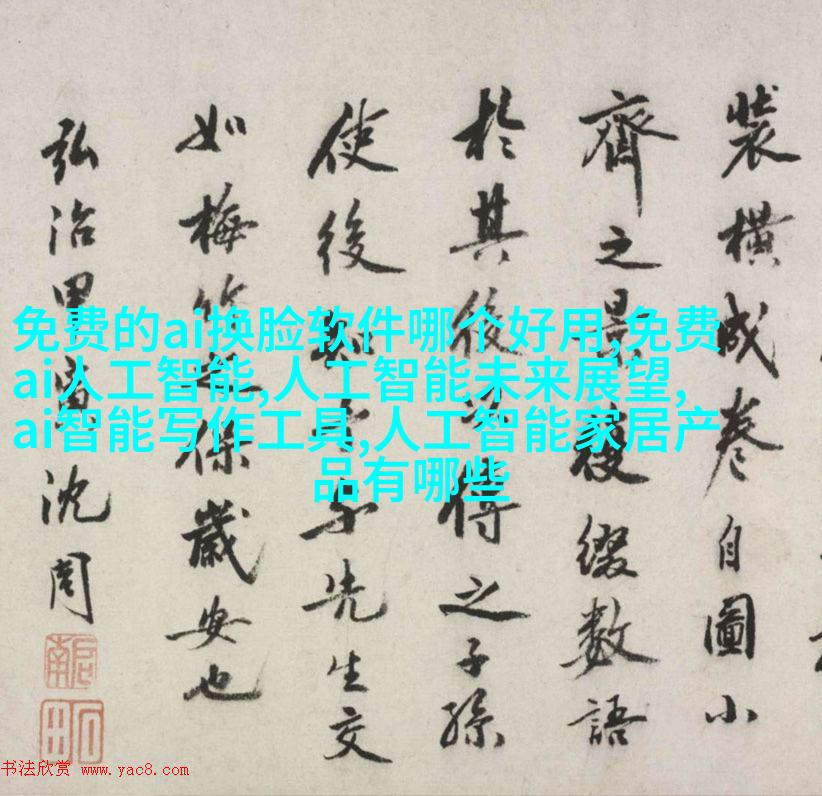 裝橫成卷自圖小
齊之景復綴數語
於其後得之子孫
使後知先生交
如梅竹保歲安也
弘治甲寅沈周
免费的ai换脸软件哪个好用,免费
ai人工智能,人工智能未来展望,
ai智能写作工具,人工智能家居产
品有哪些
书法欣赏 www.yac8.com